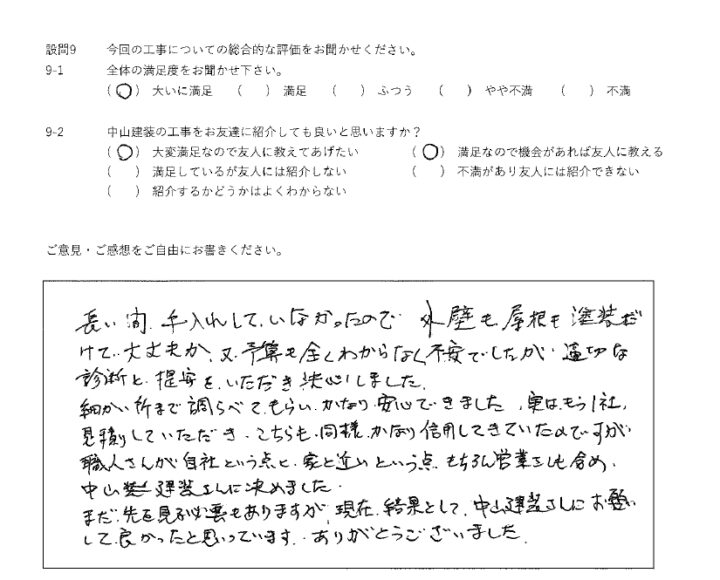 設問9　今回の工事についての総合的な評価をお聞かせください。
9-1　全体の満足度をお聞かせ下さい。
(○) 大いに満足　(　) 満足　(　) ふつう　(　) やや不満　(　) 不満
9-2　中山建装の工事をお友達に紹介しても良いと思いますか？
(○) 大変満足なので友人に教えてあげたい　(○) 満足なので機会があれば友人に教える
(　) 満足しているが友人には紹介しない　(　) 不満があり友人には紹介できない
(　) 紹介するかどうかはよくわからない
ご意見・ご感想をご自由にお書きください。
長い間、手入れしていなかったので 外壁も屋根も塗装だ
けで、大丈夫か、又、予算も全くわからなく不安でしたが、適切な
診断と、提案を、いただき決心しました。
細かい所まで調らべてもらい、かなり安心できました、実は、もう1社、
見積りしていただき、こちらも、同様、かなり信用してきていたのですが
職人さんが自社という点と、家と近いという点、もちろん営業さんも含め、
中山建装さんに決めました。
まだ、先を見る必要もありますが、現在、結果として、中山建装さんにお願い
して良かったと思っています。ありがとうございました。